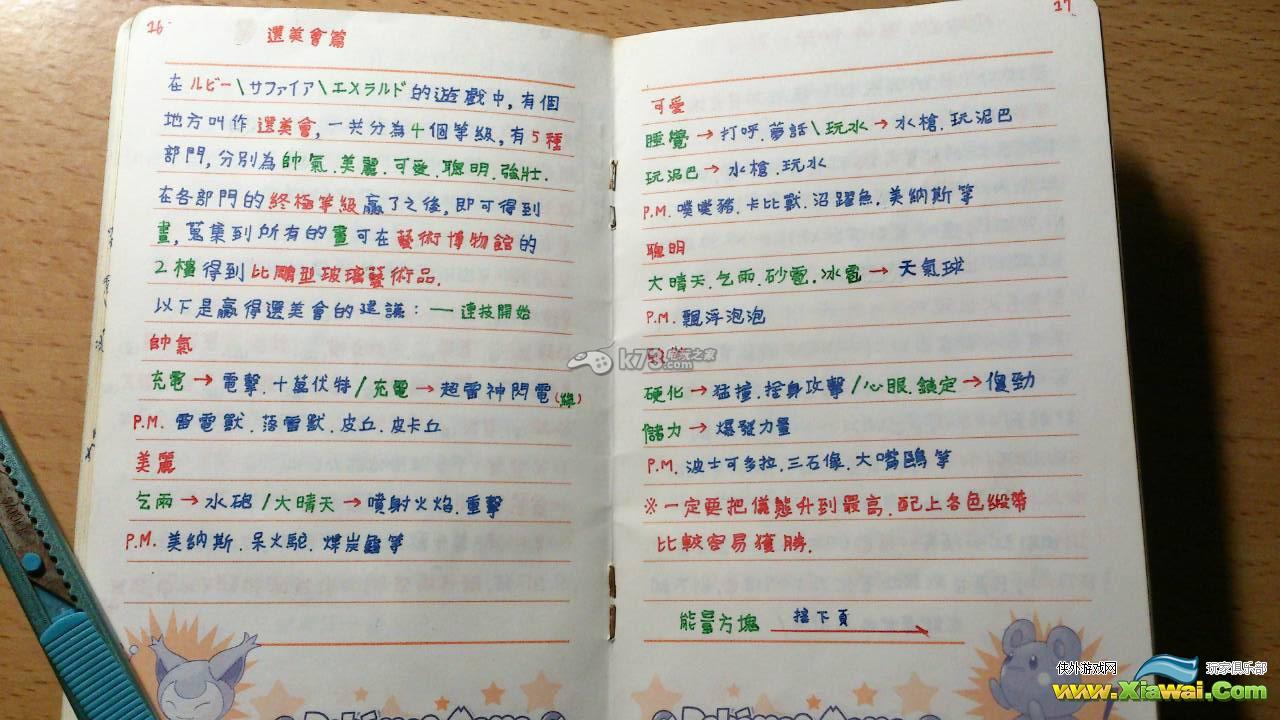 16
選美會篇
在ルビー\サファイア\エメラルド的遊戲中,有個
地方叫作選美會,一共分為4個等級,有5種
部門,分別為帥氣.美麗.可愛.聰明.強壯.
在各部門的終極等級贏了之後,即可得到
畫,蒐集到所有的畫可在藝術博物館的
2樓得到比鵰型玻璃藝術品.
以下是贏得選美會的建議:—連技開始
帥氣
充電→電擊.十萬伏特/充電→超雷神閃電(綠)
P.M.雷電獸.落雷獸.皮丘.皮卡丘
美麗
乞雨→水砲/大晴天→噴射火焰.重擊
P.M.美納斯.呆火駝.煤炭龜等
17
可愛
睡覺→打呼.夢話\玩水→水槍.玩泥巴
玩泥巴→水槍.玩水
P.M.噗噗豬.卡比獸.沼躍魚.美納斯等
聰明
大晴天.乞雨.砂雹.冰雹→天氣球
P.M.飄浮泡泡
硬化→猛撞.捨身攻擊/心眼.鎖定→傻勁
儲力→爆發力量
P.M.波士可多拉.三石像.大嘴鷗等
※一定要把儀態升到最高.配上各色緞帶
比較容易獲勝.
能量方塊 接下頁
k73 电玩之家
侠外游戏网 玩家俱乐部
www.Xiawai.Com